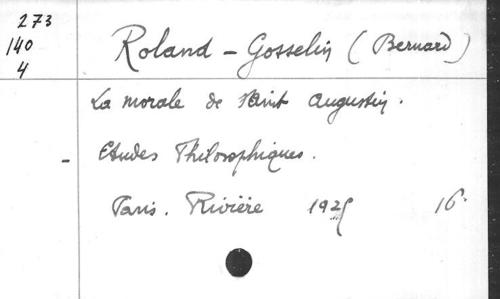 273
140
4
Roland - Gosselin (Bernard)
La morale de Saint Augustin.
- Etudes Philosophiques.
Paris. Rivière 1925 16°